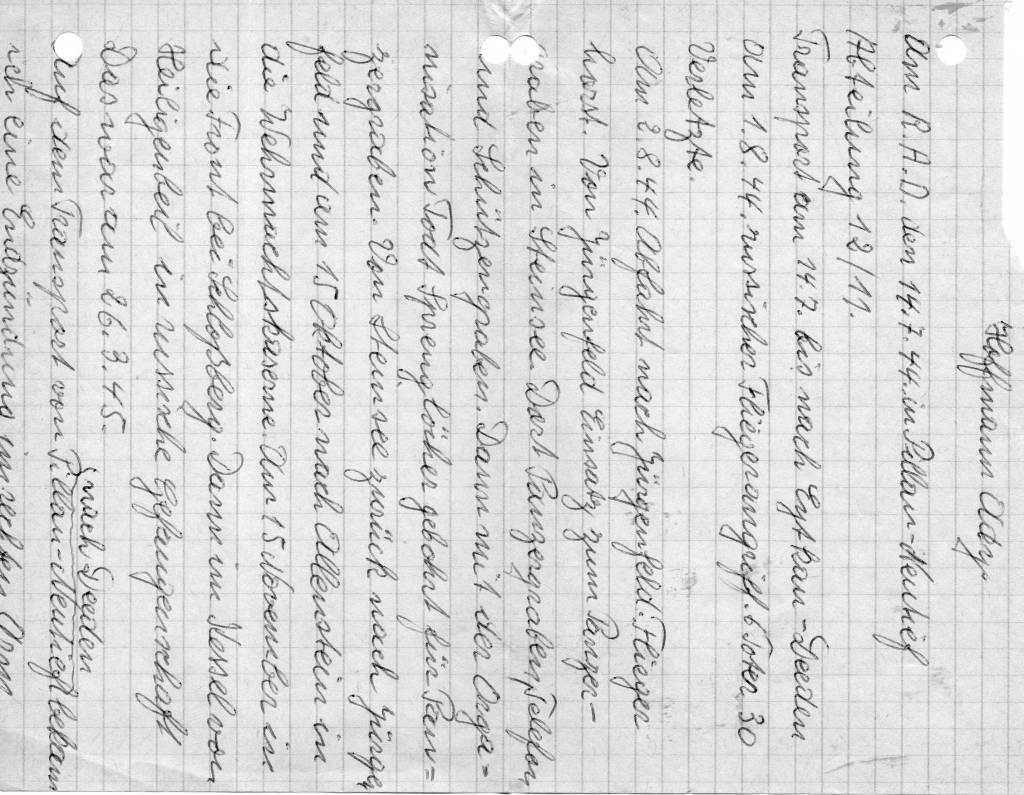 Hoffmann Ady.
Am R.A.D. den 14.7.44. in Pillau-Neutief
Abteilung 12/11.
Transport am 14.7. bis nach Eytkau-Deeden
Am 1.8.44. russischer Fliegerangriff. 6 Toter 30
Verletzte.
Am 2.8.44. Abfahrt nach Jürgenfeld. Flieger
horst. Von Jürgenfeld Einsatz zum Panzer-
raben in Steinsee. Dort Panzergraben, Telefon
und Schützengraben. Dann mit der Orga=
nisation Todt Sprenglöcher gebohrt für Pan=
zergraben. Von Steinsee zurück nach Jürgen
feld und am 15 Oktober nach Allenstein in
die Wehrmachtskaserne. Am 15 November in
die Front bei Schloßberg. Dann im Kessel von
Heiligenbeil in russische Gefangenschaft
Das war am 26.3.45.
nach Deeden
Auf dem Transport von Pillau-Neutief bekam
ich eine Entzündung im rechten Arm